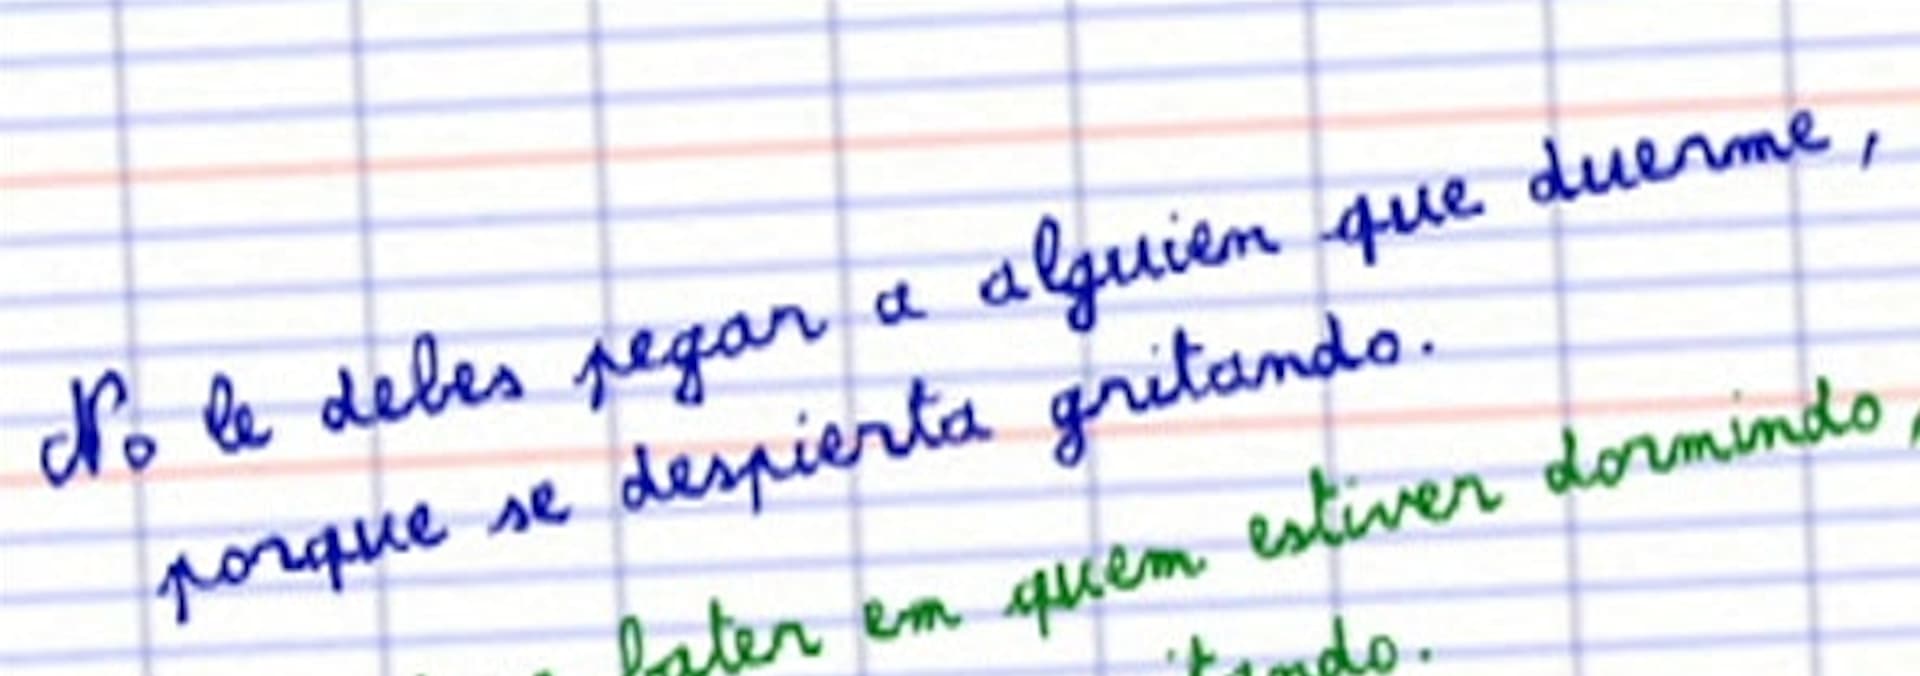 No le debes pegar a alguien que duerme,
porque se despierta gritando.
bater em quem estiver dormindo,